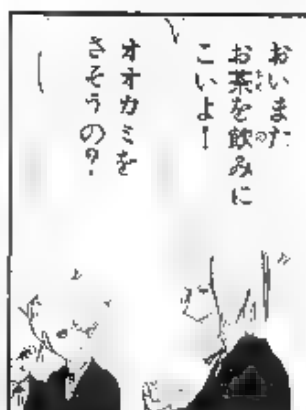 おいまた
お茶を飲みに
こいよー
オオカミを
さそうの？